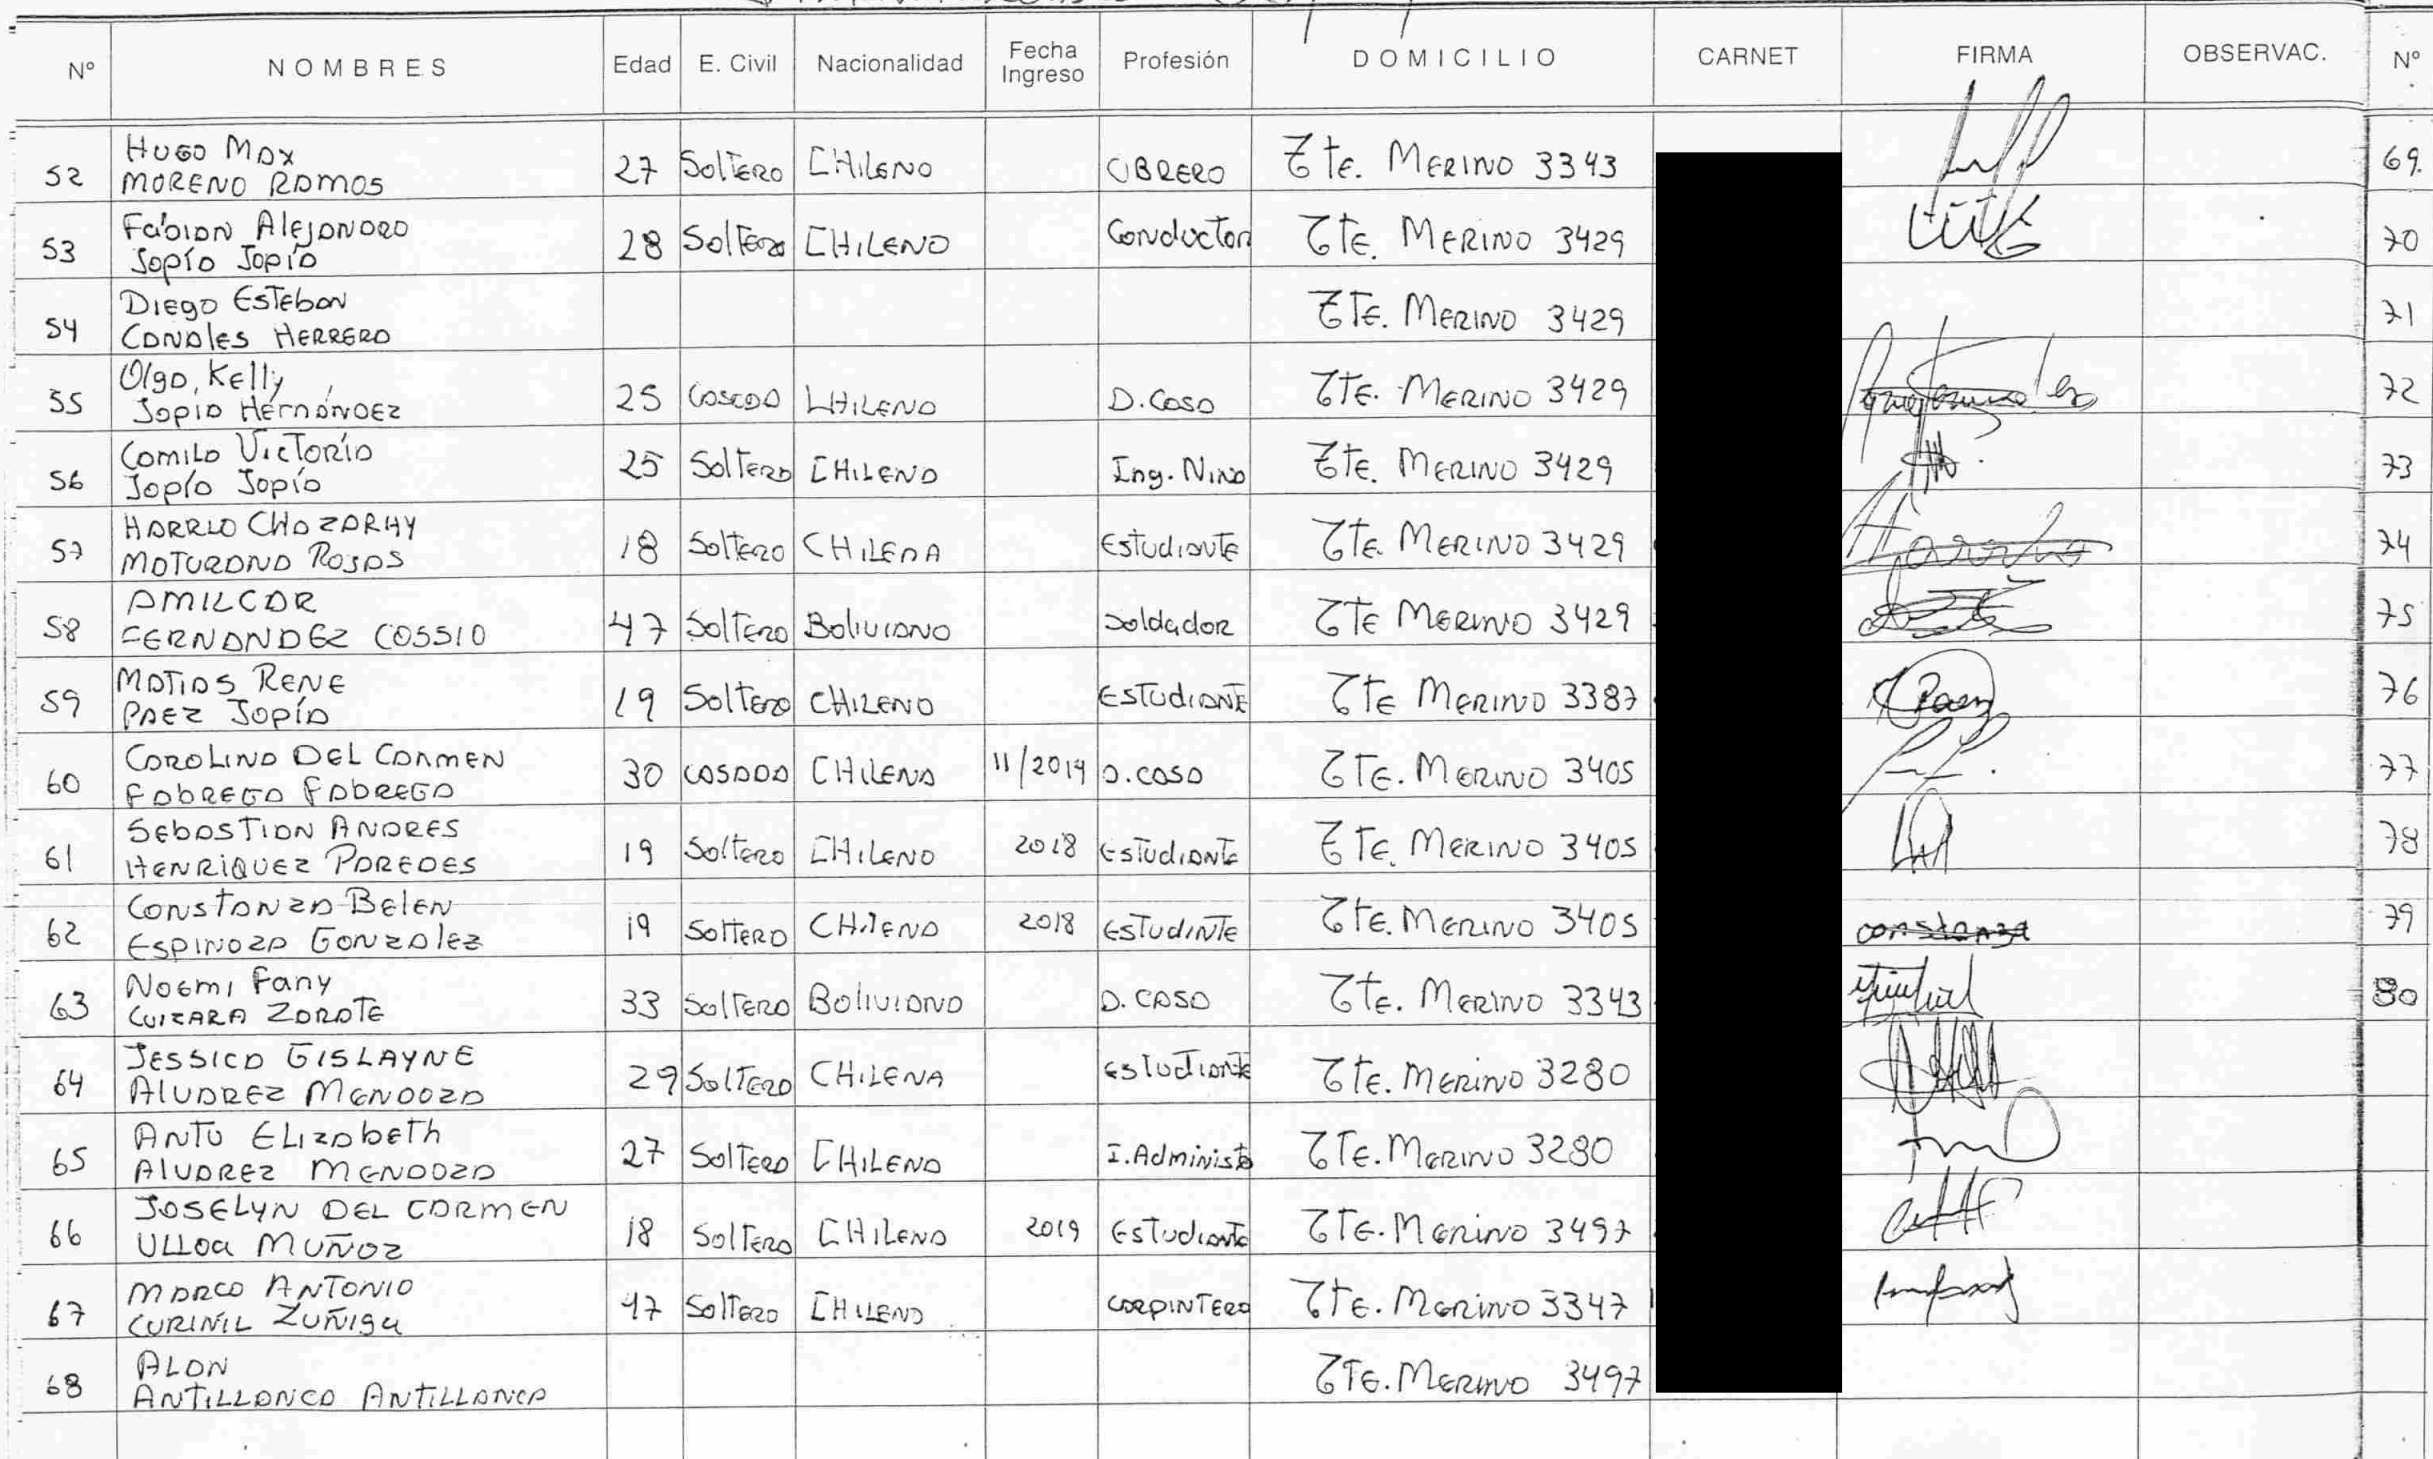 Nº NOMBRES Edad E. Civil Nacionalidad Fecha Ingreso Profesión DOMICILIO CARNET FIRMA OBSERVAC. Nº
52 Hugo Max Moreno Ramos 27 Soltero CHILENO OBRERO Tte. Merino 3343 69.
53 Fabian Alejandro Japío Japío 28 Soltero CHILENO Conductor Tte. Merino 3429 70
54 Diego Esteban Canales Herrera Tte. Merino 3429 71
55 Olga, Kelly Japio Hernández 25 Casada CHILENA D. Casa Tte. Merino 3429 72
56 Camila Victoria Japío Japío 25 Soltera CHILENA Ing. Tte. Merino 3429 73
57 Maturana Rojas 18 Soltero CHILENA Estudiante Tte. Merino 3429 74
58 AMILCAR FERNANDEZ COSSIO 47 Soltero Boliviano Soldador Tte Merino 3429 75
59 Matias Rene Paez Japía 19 Soltero CHILENO Estudiante Tte Merino 3387 76
60 Carolina Del Carmen Fabrega Fabrega 30 casada CHILENA 11/2019 D. casa Tte. Merino 3405 77
61 Sebastian Andres Henriquez Paredes 19 Soltero CHILENO 2018 Estudiante Tte. Merino 3405 78
62 Constanza Belen Espinoza Gonzalez 19 Soltero CHILENA 2018 Estudinte Tte. Merino 3405 constanza 79
63 Noemi Fany Cuizara Zarate 33 Soltera Boliviana D. CASA Tte. Merino 3343 80
64 Jessica Gislayne Alvarez Mendoza 29 Soltera CHILENA Estudiante Tte. Merino 3280
65 Elizabeth Alvarez Mendoza 27 Soltera CHILENA I. Administ Tte. Merino 3280
66 Joselyn Del Carmen Ulloa Muñoz 18 Soltera CHILENA 2019 Estudiante Tte. Merino 3497
67 Marco Antonio Curinil Zuñiga 47 Soltero CHILENO Carpintero Tte. Merino 3347
68 Antillanca Antillanca Tte. Merino 3497